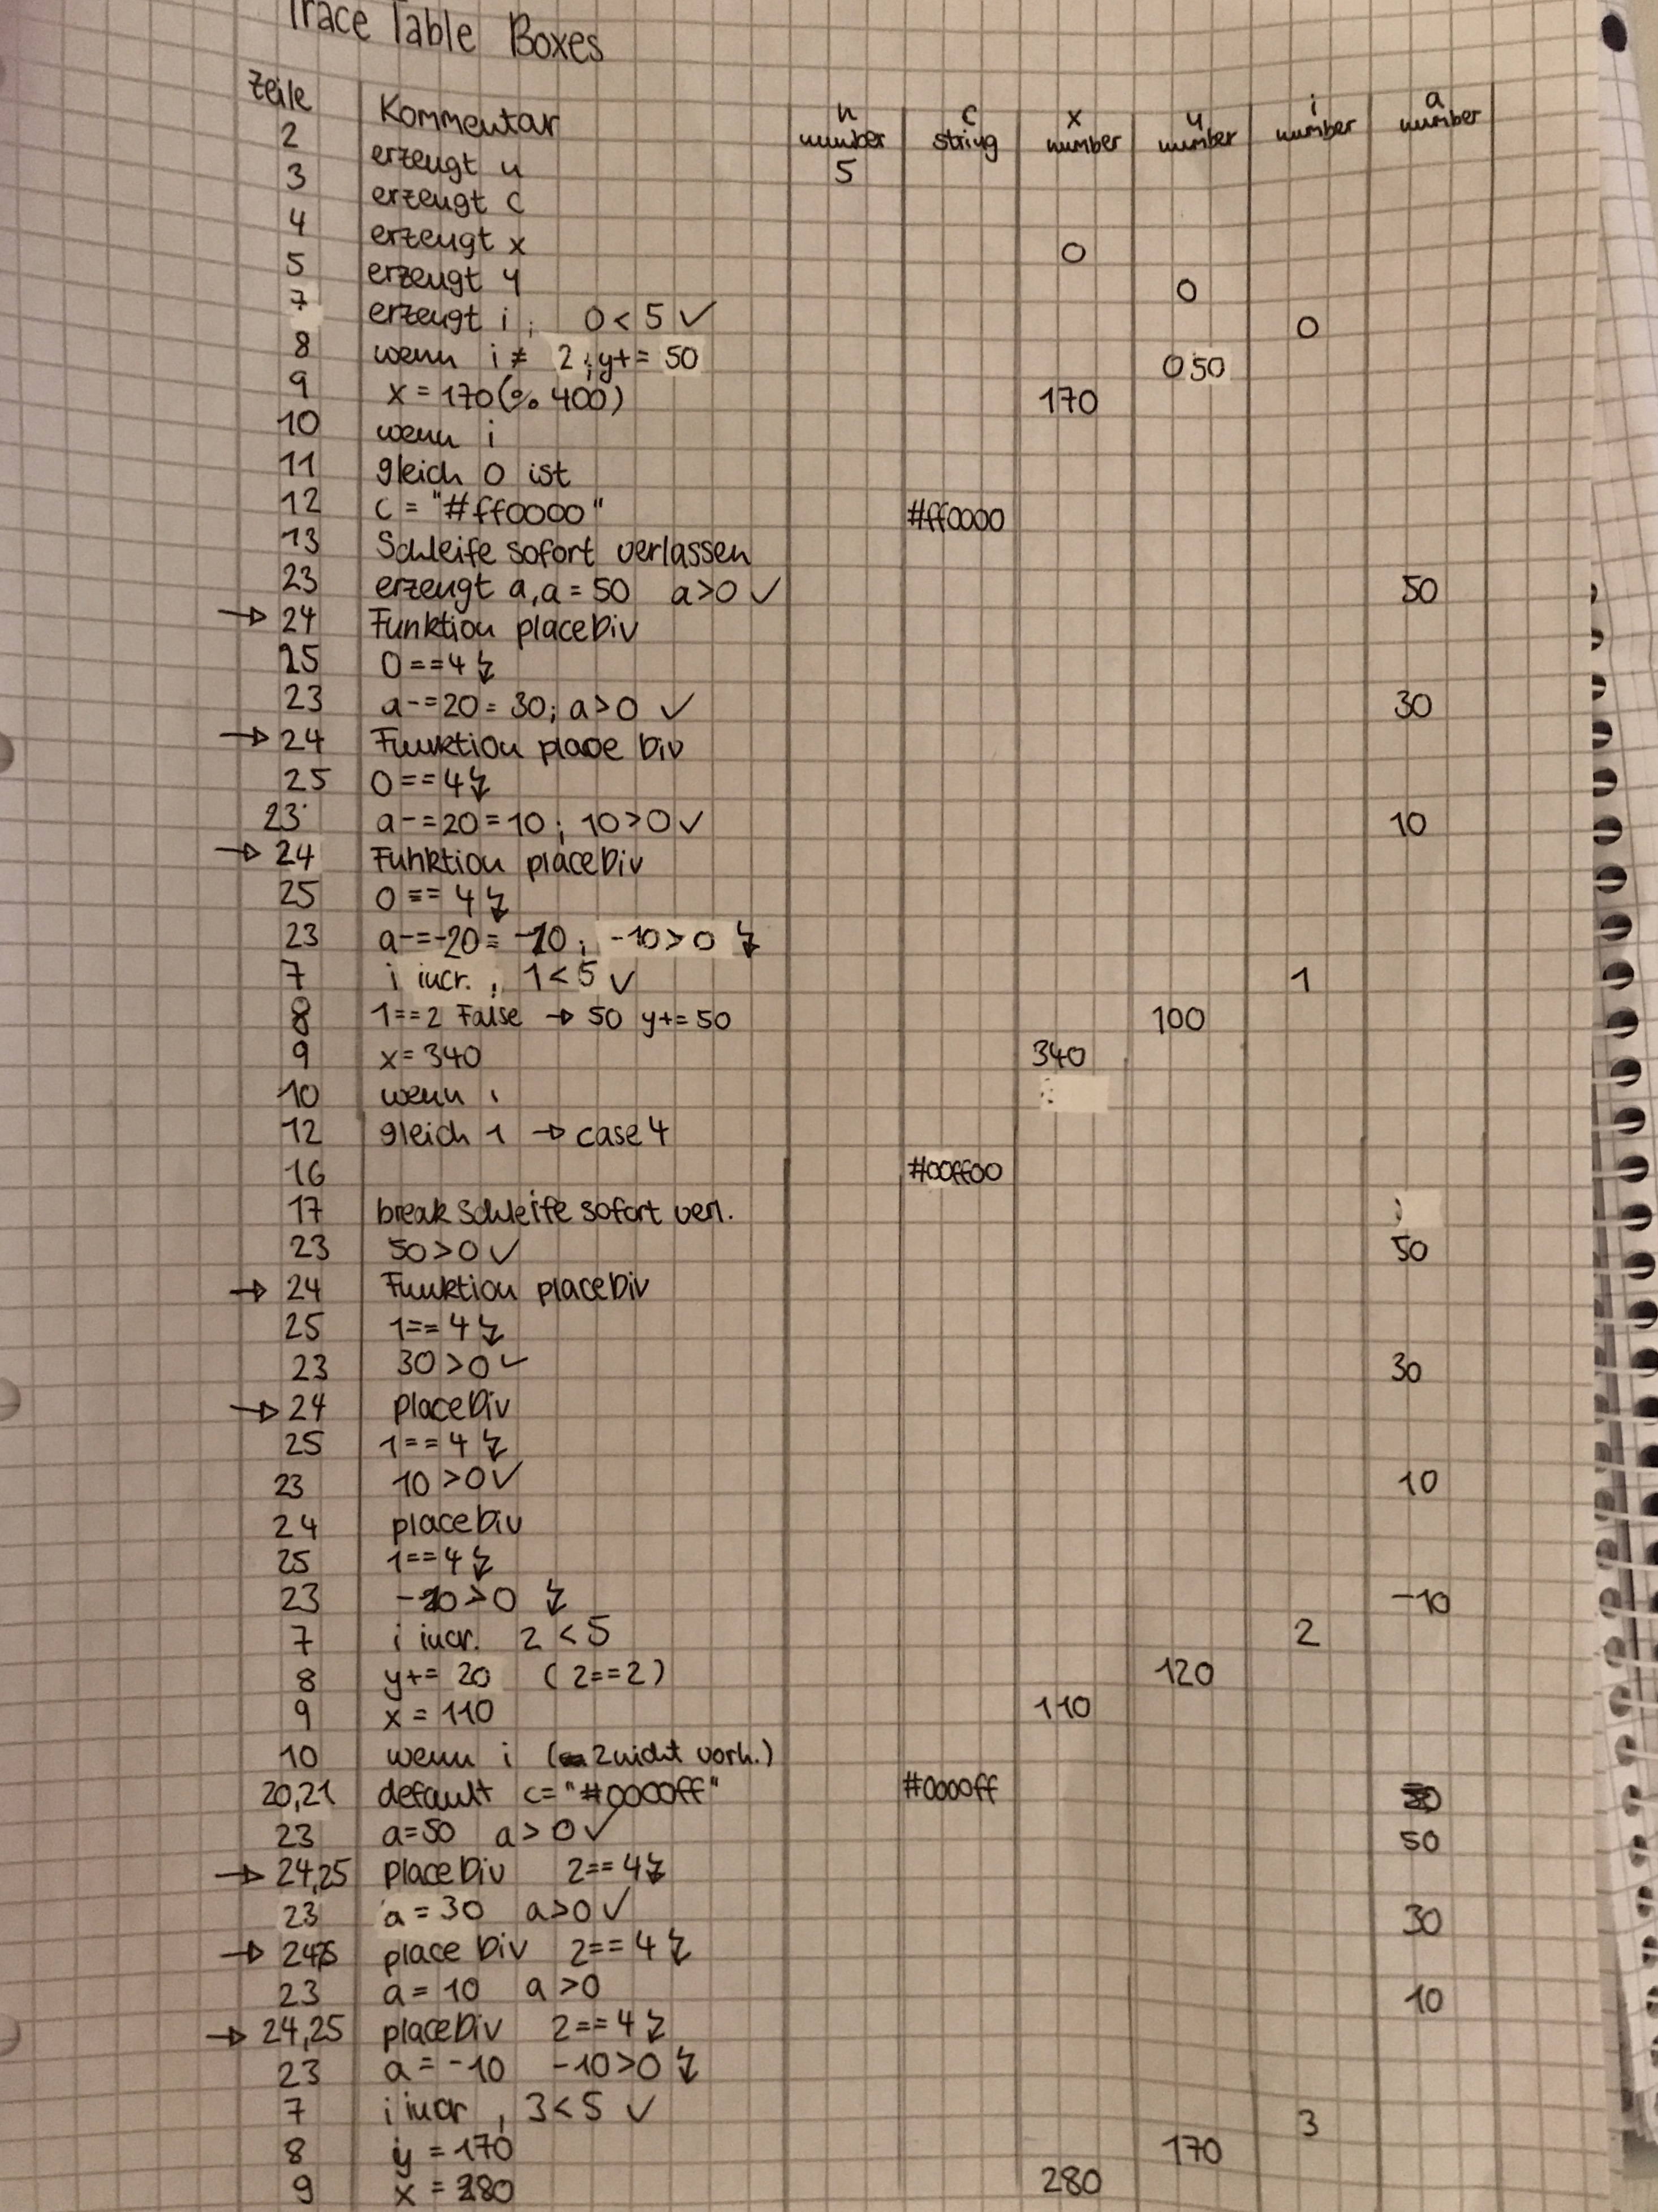 Trace Table Boxes
Zeile Kommentar n number c string x number y number i number a number
2 erzeugt n 5
3 erzeugt c
4 erzeugt x 0
5 erzeugt y 0
7 erzeugt i; 0<5 ✓ 0
8 wenn i ≠ 2; y+= 50 050
9 x = 170(% 400) 170
10 wenn i
11 gleich 0 ist
12 c = "#ff0000" #ff0000
13 Schleife sofort verlassen
23 erzeugt a, a = 50 a>0 ✓ 50
→ 24 Funktion placeDiv
25 0==4 ↯
23 a-=20 = 30; a>0 ✓ 30
→ 24 Funktion place Div
25 0==4 ↯
23 a-=20=10; 10>0 ✓ 10
→ 24 Funktion placeDiv
25 0 == 4 ↯
23 a-=-20= -10; -10>0 ↯
7 i incr., 1<5 ✓ 1
8 1==2 False → 50 y+=50 100
9 x=340 340
10 wenn i
12 gleich 1 → case 4
16 #00ff00
17 break Schleife sofort verl.
23 50>0 ✓ 50
→ 24 Funktion placeDiv
25 1==4 ↯
23 30>0 ✓ 30
→ 24 placeDiv
25 1==4 ↯
23 10>0 ✓ 10
24 placeDiv
25 1==4 ↯
23 -10>0 ↯ -10
7 i incr. 2<5 2
8 y+= 20 (2==2) 120
9 x = 110 110
10 wenn i (2 nicht vorh.)
20,21 default c="#0000ff" #0000ff
23 a=50 a>0 ✓ 50
→ 24,25 placeDiv 2==4 ↯
23 a = 30 a>0 ✓ 30
→ 24,25 place Div 2==4 ↯
23 a = 10 a>0 10
→ 24,25 placeDiv 2==4 ↯
23 a = -10 -10>0 ↯
7 i incr, 3<5 ✓ 3
8 y = 170 170
9 x = 280 280